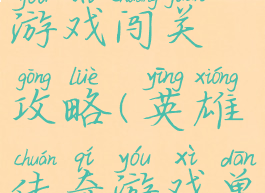 yóu xì chuǎng guān
游戏闯关
gōng lüè yīng xióng
攻略(英雄
chuán qí yóu xì dān
传奇游戏单